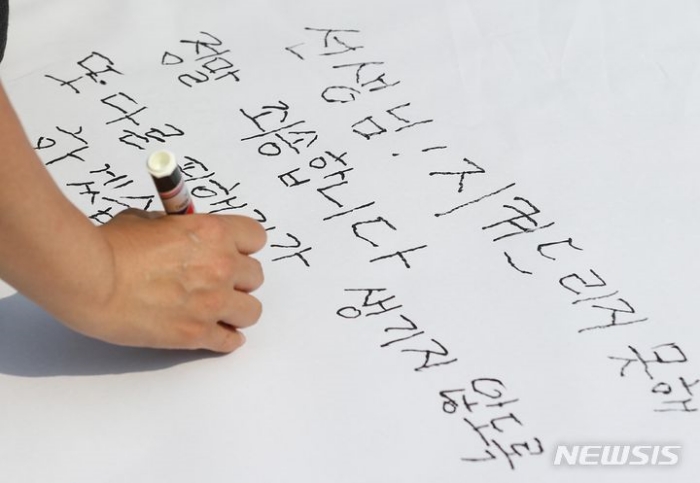 선생님! 지켜드리지 못해
정말 죄송합니다
또 다른 피해자가 생기지 않도록